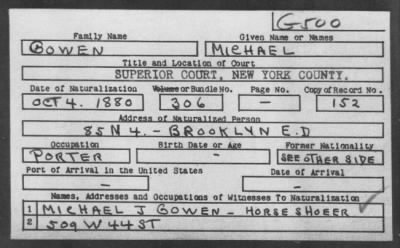 G500
Family Name Given Name or Names
GOWEN MICHAEL
Title and Location of Court
SUPERIOR COURT, NEW YORK COUNTY.
Date of Naturalization Volume or Bundle No. Page No. Copy of Record No.
OCT 4. 1880 306 - 152
Address of Naturalized Person
85 N 4. - BROOKLYN E.D
Occupation Birth Date or Age Former Nationality
PORTER - SEE OTHER SIDE
Port of Arrival in the United States Date of Arrival
- -
Names, Addresses and Occupations of Witnesses To Naturalization
1 MICHAEL J GOWEN - HORSESHOEER
2 509 W 44 ST